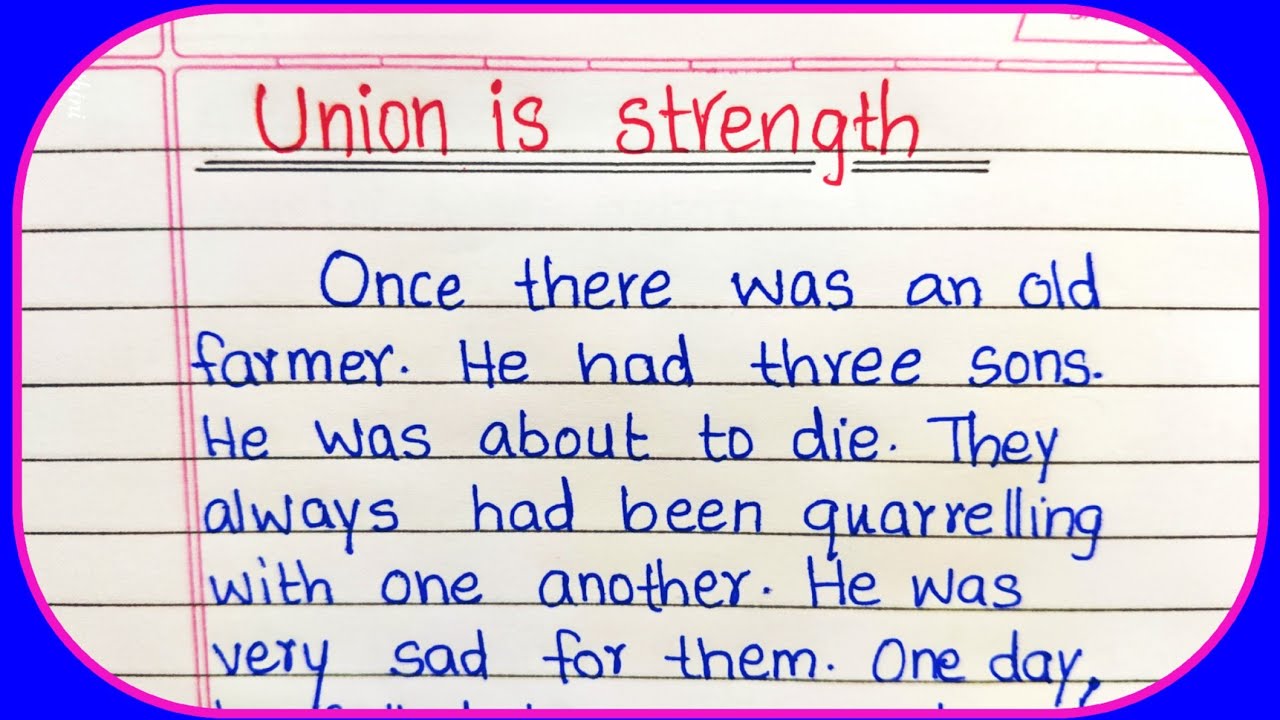 Union is strength
Once there was an old
farmer. He had three sons.
He was about to die. They
always had been quarrelling
with one another. He was
very sad for them. One day,